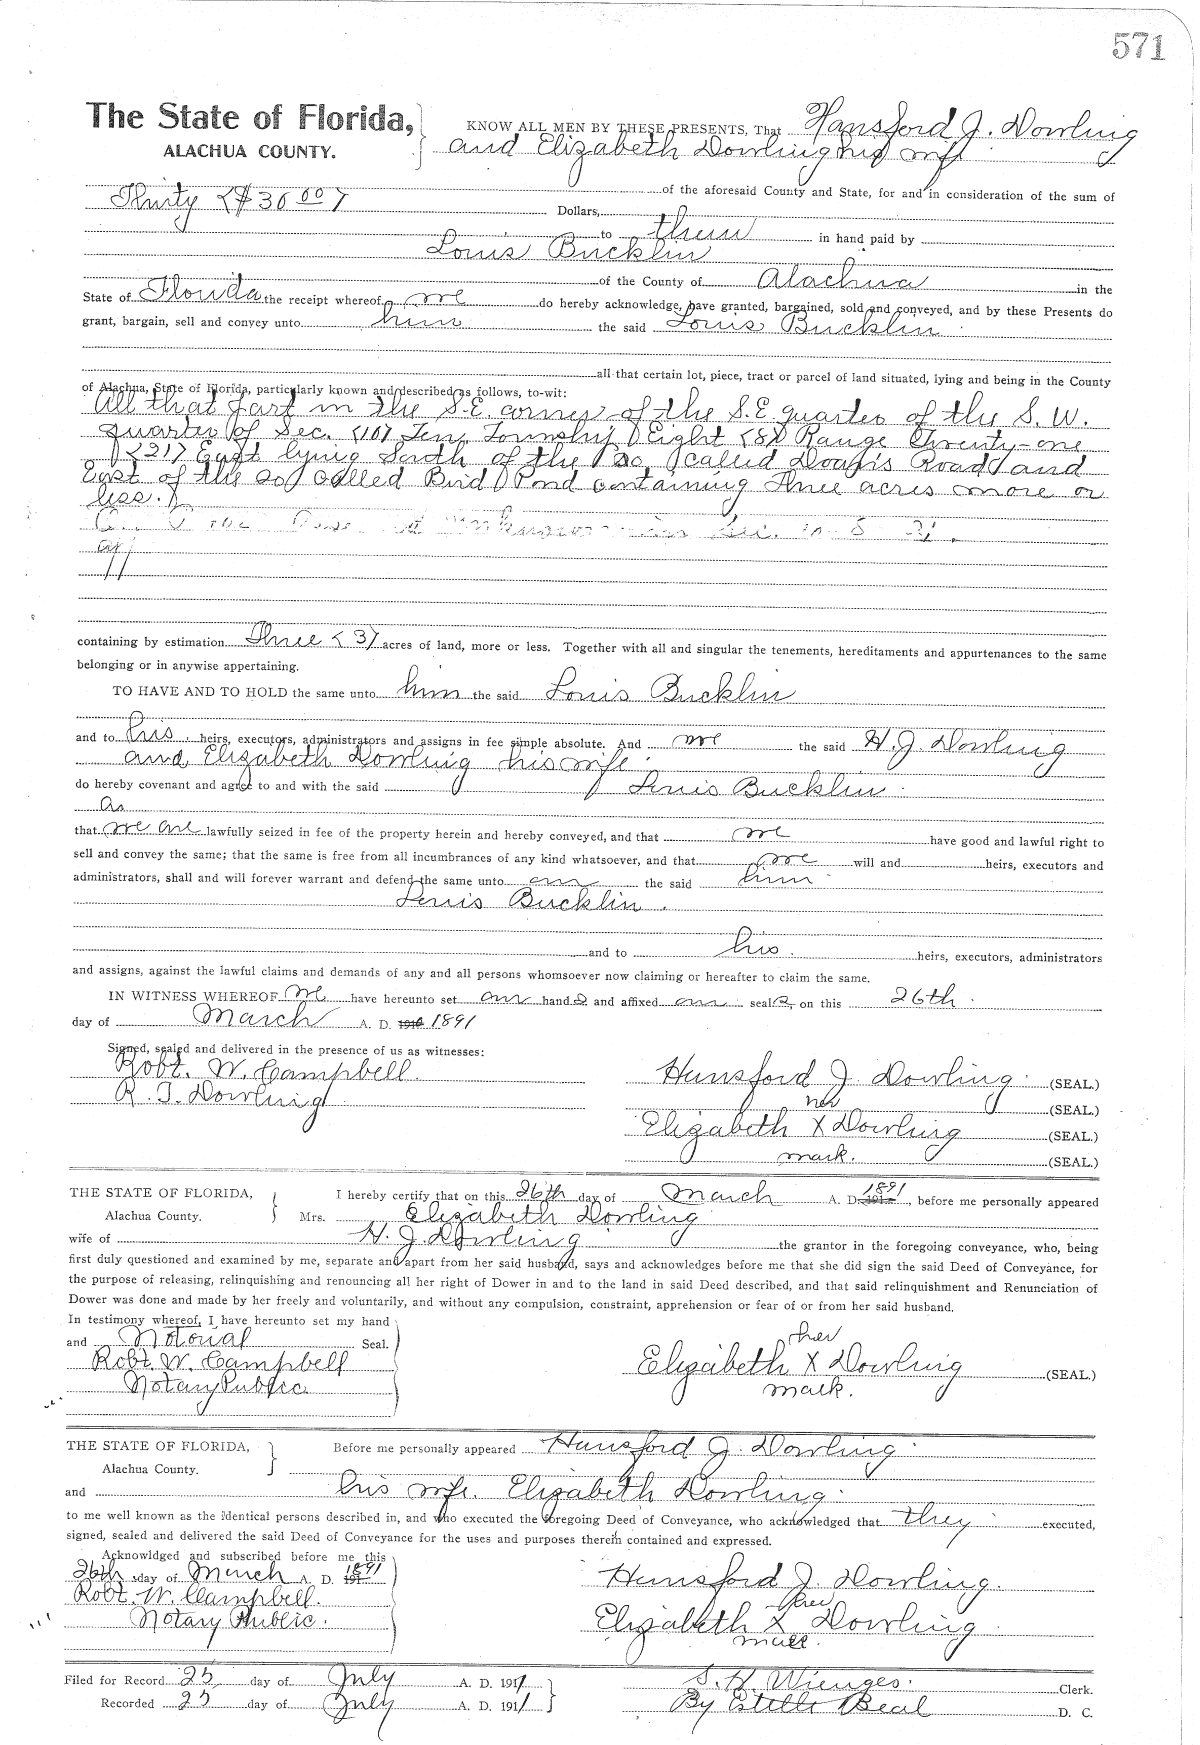 571
The State of Florida, KNOW ALL MEN BY THESE PRESENTS, That Hansford J. Dowling
ALACHUA COUNTY. and Elizabeth Dowling his wife
of the aforesaid County and State, for and in consideration of the sum of
Thirty ($30 00) Dollars,
to them in hand paid by
Louis Bucklin
of the County of Alachua in the
State of Florida the receipt whereof we do hereby acknowledge, have granted, bargained, sold and conveyed, and by these Presents do
grant, bargain, sell and convey unto him the said Louis Bucklin
all that certain lot, piece, tract or parcel of land situated, lying and being in the County
of Alachua, State of Florida, particularly known and described as follows, to-wit:
All that part in the S.E. corner of the S.E. quarter of the S.W.
quarter of Sec. (10) Ten, Township Eight (8) Range Twenty-one
(21) East lying South of the so called Road and
East of the so called Bird Pond containing three acres more or
less.
containing by estimation Three (3) acres of land, more or less. Together with all and singular the tenements, hereditaments and appurtenances to the same
belonging or in anywise appertaining.
TO HAVE AND TO HOLD the same unto him the said Louis Bucklin
and to his heirs, executors, administrators and assigns in fee simple absolute. And we the said H. J. Dowling
and Elizabeth Dowling his wife
do hereby covenant and agree to and with the said Louis Bucklin
as
that we are lawfully seized in fee of the property herein and hereby conveyed, and that we have good and lawful right to
sell and convey the same; that the same is free from all incumbrances of any kind whatsoever, and that we will and heirs, executors and
administrators, shall and will forever warrant and defend the same unto our the said him
Louis Bucklin.
and to his heirs, executors, administrators
and assigns, against the lawful claims and demands of any and all persons whomsoever now claiming or hereafter to claim the same.
IN WITNESS WHEREOF We have hereunto set our hands and affixed our seals on this 26th
day of March A. D. 1891
Signed, sealed and delivered in the presence of us as witnesses:
Robt. W. Campbell. Hansford J. Dowling (SEAL.)
R. T. Dowling her (SEAL.)
Elizabeth X Dowling (SEAL.)
mark. (SEAL.)
THE STATE OF FLORIDA, I hereby certify that on this 26th day of March A. D. 1891, before me personally appeared
Alachua County. Mrs. Elizabeth Dowling
wife of H. J. Dowling the grantor in the foregoing conveyance, who, being
first duly questioned and examined by me, separate and apart from her said husband, says and acknowledges before me that she did sign the said Deed of Conveyance, for
the purpose of releasing, relinquishing and renouncing all her right of Dower in and to the land in said Deed described, and that said relinquishment and Renunciation of
Dower was done and made by her freely and voluntarily, and without any compulsion, constraint, apprehension or fear of or from her said husband.
In testimony whereof, I have hereunto set my hand
and Notorial Seal. her
Robt. W. Campbell Elizabeth X Dowling (SEAL.)
Notary Public mark.
THE STATE OF FLORIDA, Before me personally appeared Hansford J. Dowling
Alachua County.
and his wife. Elizabeth Dowling
to me well known as the identical persons described in, and who executed the foregoing Deed of Conveyance, who acknowledged that they executed,
signed, sealed and delivered the said Deed of Conveyance for the uses and purposes therein contained and expressed.
Acknowldged and subscribed before me this
26th day of March A. D. 1891 Hansford J. Dowling.
Robt. W. Campbell. her
Notary Public. Elizabeth X Dowling
mark.
Filed for Record 25 day of July A. D. 1911 S. H. Wienges. Clerk.
Recorded 25 day of July A. D. 1911 By Estelle Beal D. C.